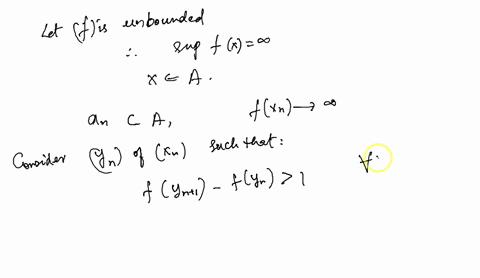 Let (f) is unbounded
∴ sup f(x) = ∞
x ∈ A.
an ⊂ A, f(xn) → ∞
Consider (yn) of (xn) such that:
f(yn+1) - f(yn) > 1